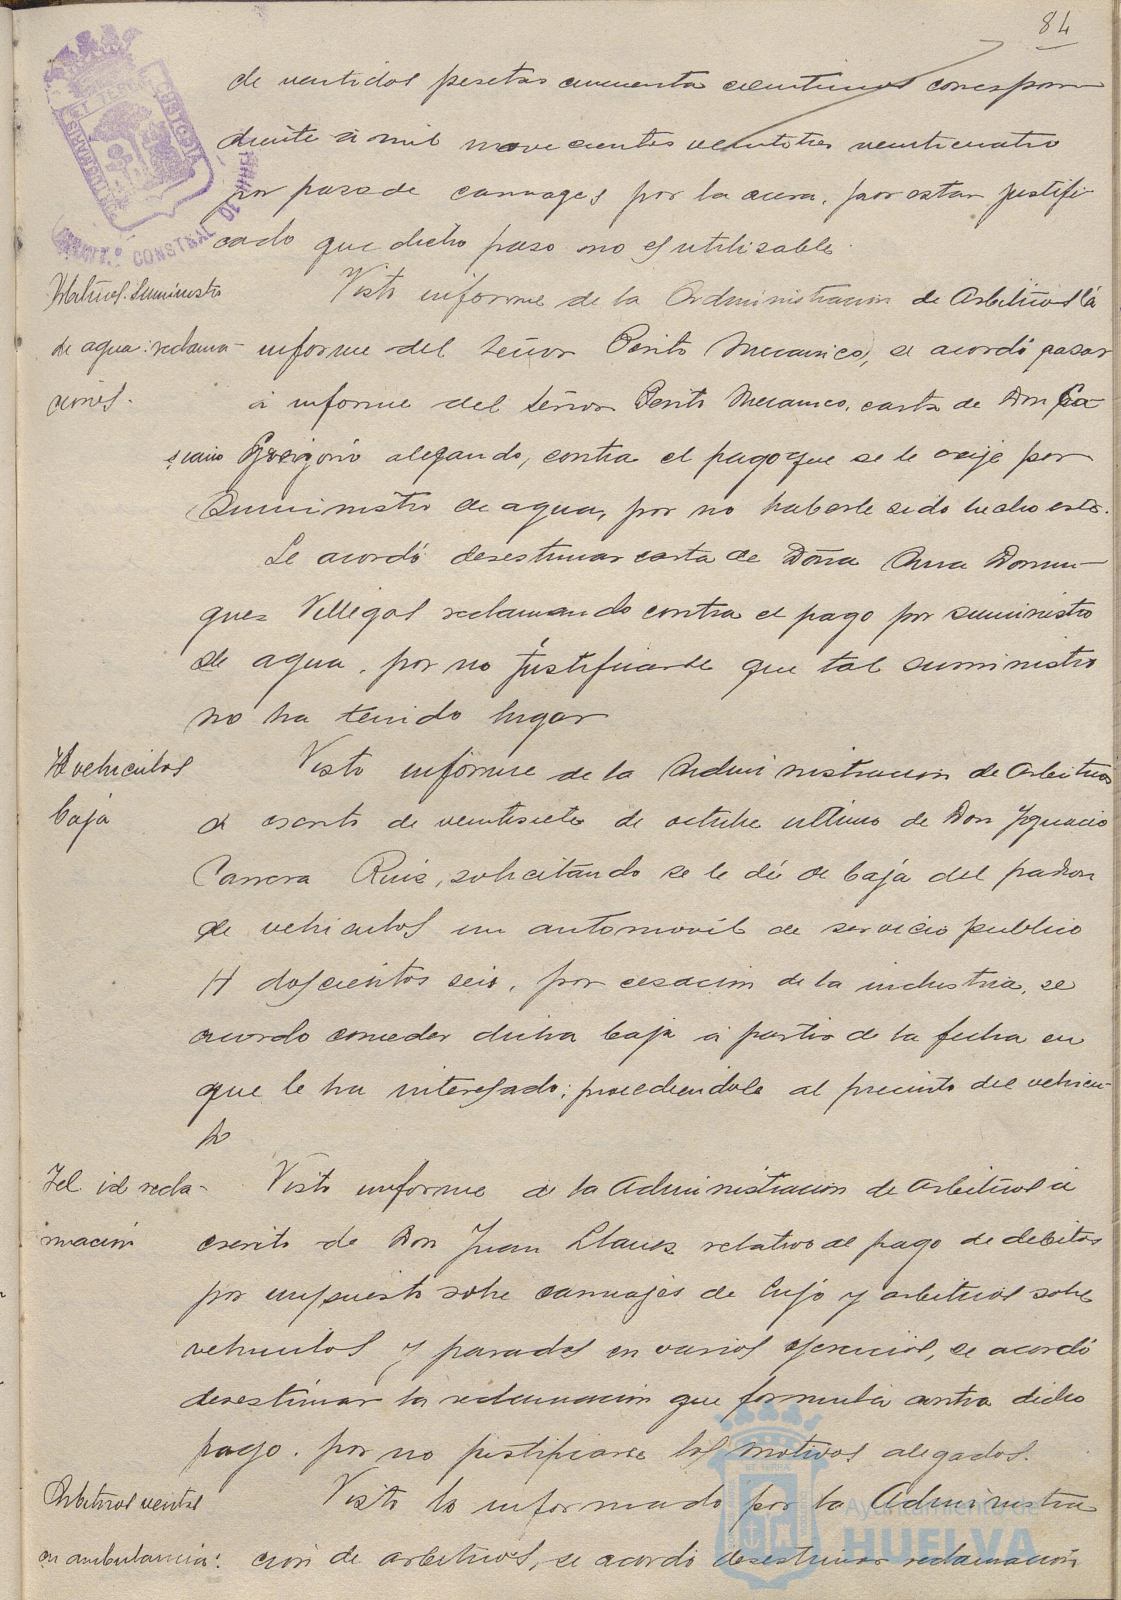 84
de ventidos pesetas cincuenta centimos correspon
diente a mil novecientos veintitres veinticuatro
por paso de carruages por la acera, por estar justifi-
cado que dicho paso no es utilizable.
Visto informe de la Administracion de Arbitrios a
de agua: reclama-
informe del Señor Perito Mecanico, se acordó pasar
ciones.
á informe del Señor Perito Mecanico, carta de Don Ca-
siano Gregorio alegando, contra el pago que se le exije por
Suministro de agua, por no haberle sido hecho este.
Se acordó desestimar carta de Doña Ana Domin-
guez Villegas reclamando contra el pago por suministro
de agua, por no justificarse que tal suministro
no ha tenido lugar
vehiculos
Visto informe de la Administracion de Arbitrios
baja
a escrito de veintisiete de octubre ultimo de Don Ygnacio
Carrera Ruiz, solicitando se le dé de baja del padron
de vehiculos un automovil de servicio publico
H doscientos seis, por cesacion de la industria, se
acordo conceder dicha baja a partir de la fecha en
que le ha interesado; procediendole al precinto del vehicu-
lo
Yd. id recla-
Visto informe de la Administracion de Arbitrios a
macion
escrito de Don Juan Llanes relativo al pago de debitos
por impuesto sobre carruajes de lujo y arbitrios sobre
vehiculos y paradas en varios ejercicios, se acordó
desestimar la reclamacion que formula contra dicho
pago. por no justificarse los motivos alegados.
Arbitrios ventas
Visto lo informado por la Administra
en ambulancia:
cion de arbitrios, se acordó desestimar reclamación
Ayuntamiento de
HUELVA